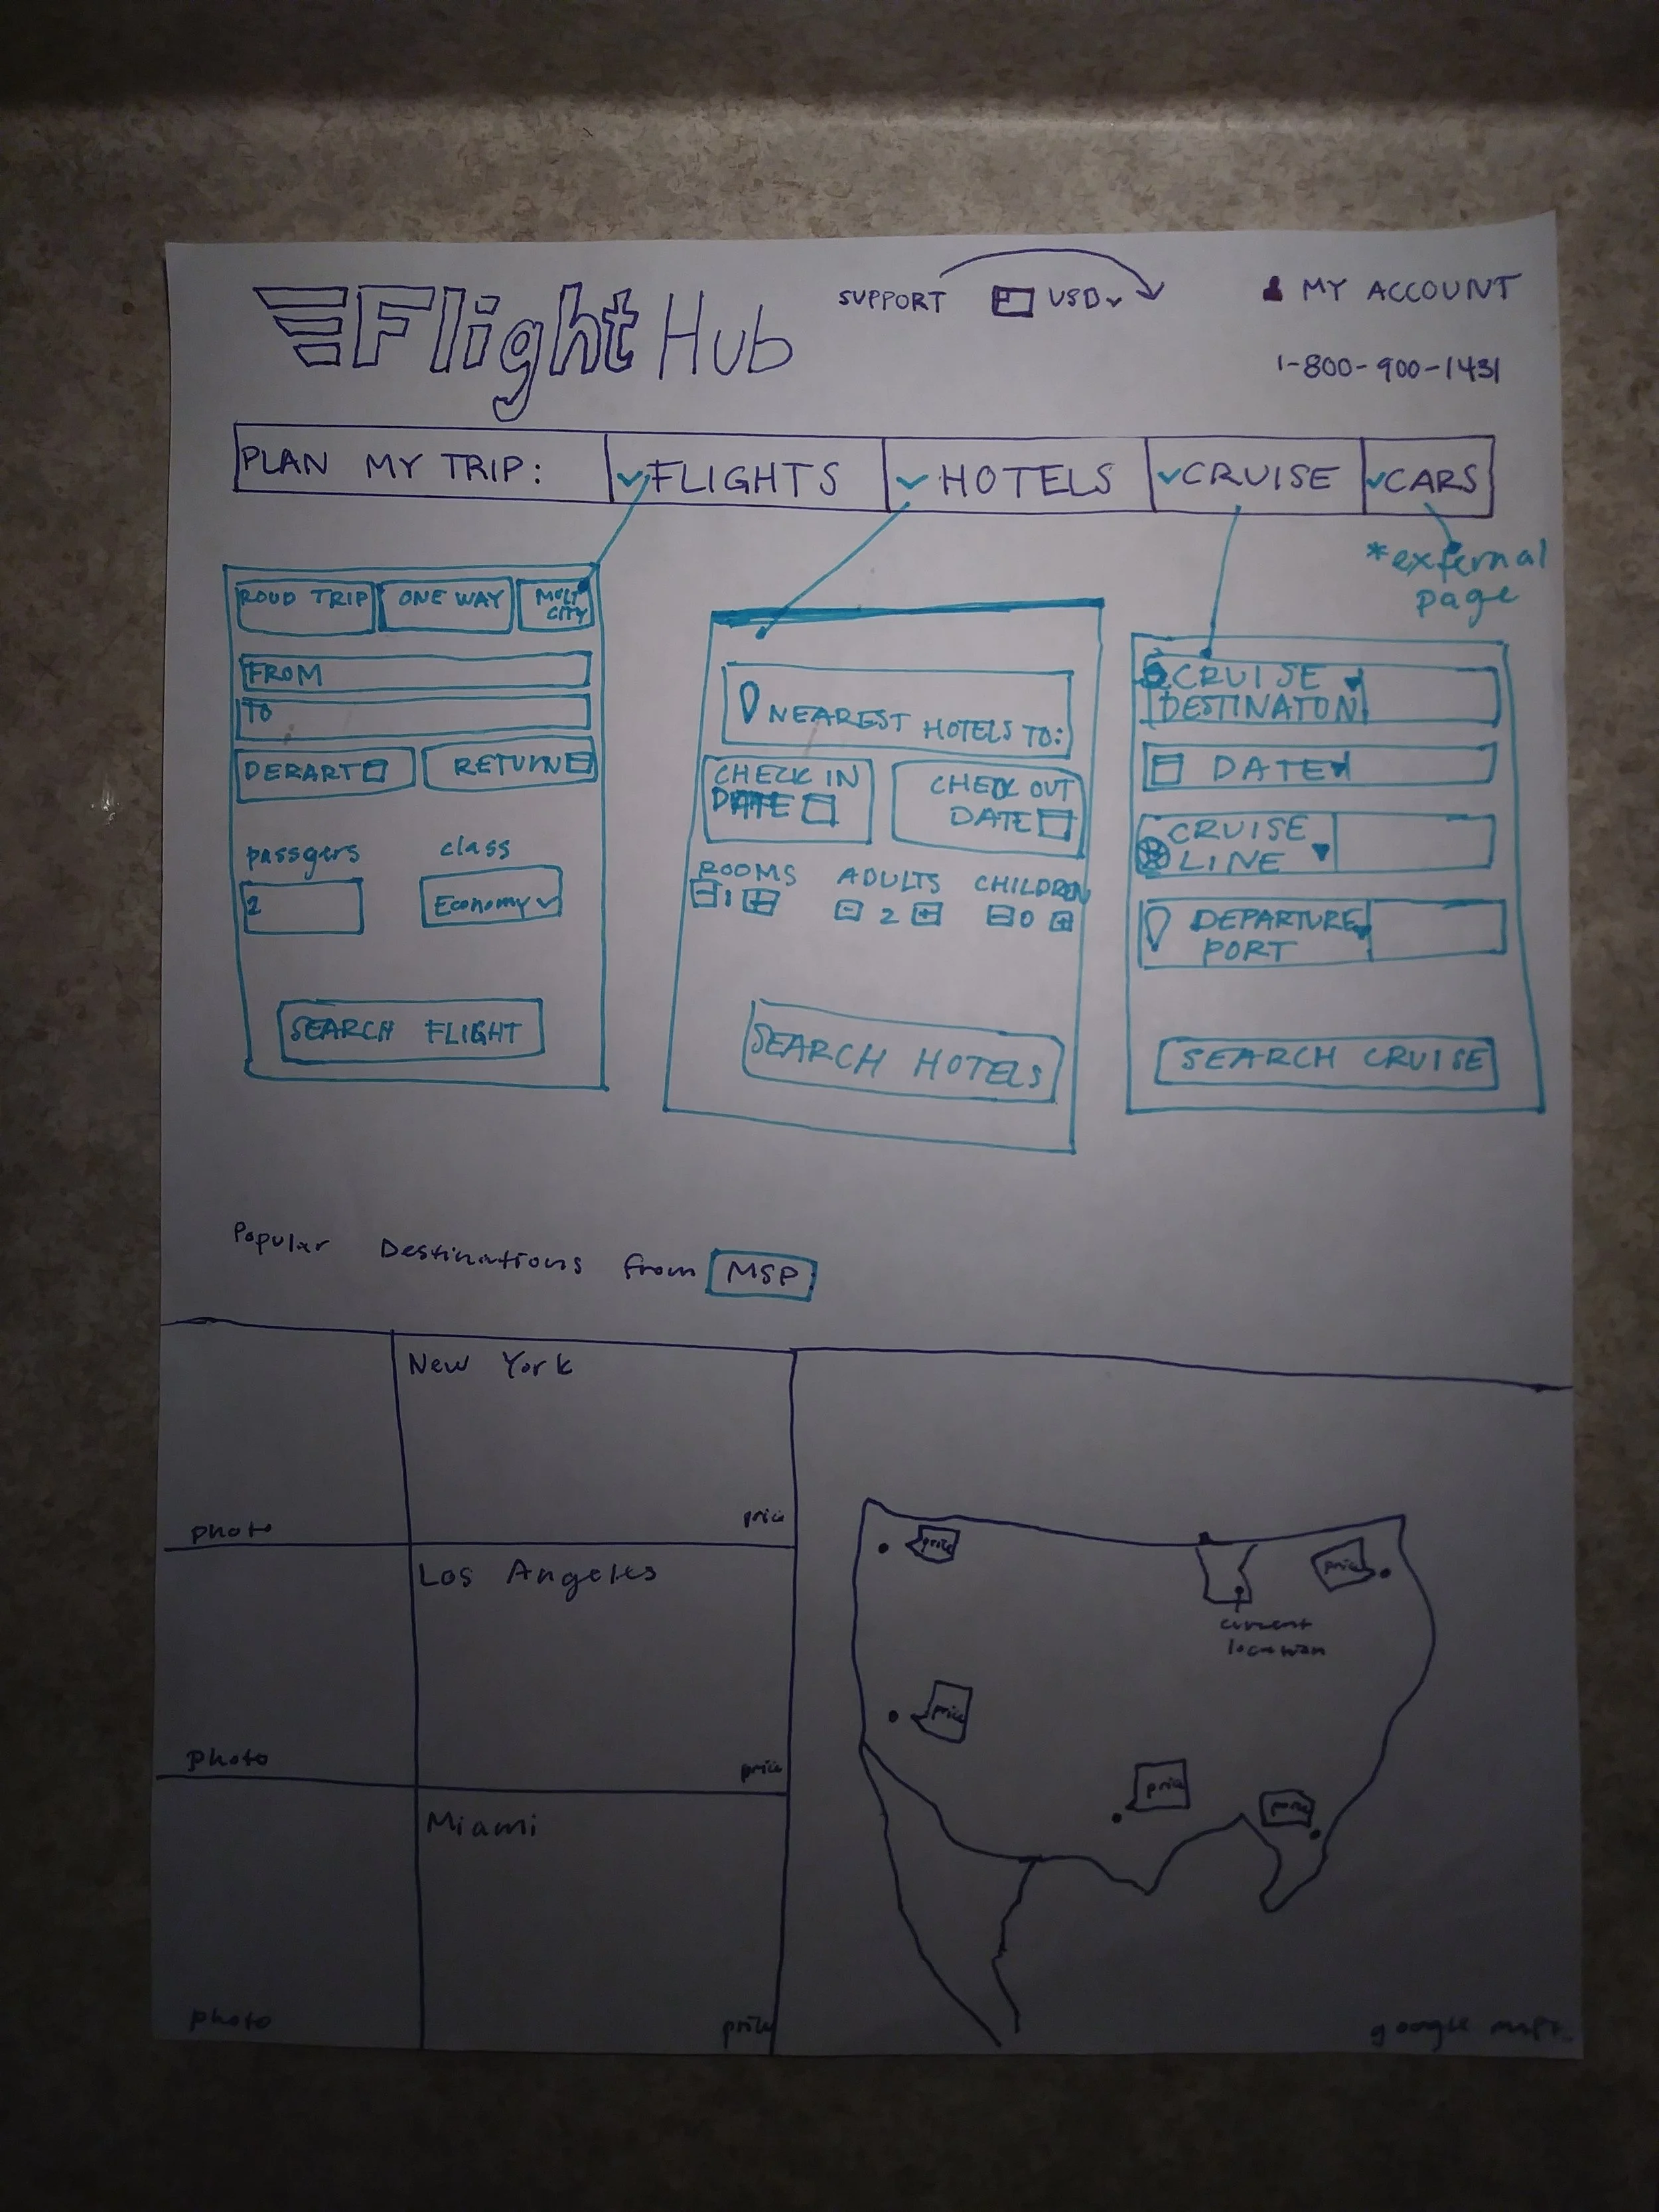 Flight Hub
SUPPORT USD
MY ACCOUNT
1-800-900-1431
PLAN MY TRIP:
FLIGHTS
HOTELS
CRUISE
CARS
*external
page
ROUD TRIP
ONE WAY
MULT
CITY
FROM
TO
DEPART
RETURN
passgers
class
2
Economy
SEARCH FLIGHT
NEAREST HOTELS TO:
CHECK IN
DATE
CHECK OUT
DATE
ROOMS
ADULTS
CHILDREN
- 1 +
- 2 +
- 0 +
SEARCH HOTELS
CRUISE
DESTINATON
DATE
CRUISE
LINE
DEPARTURE
PORT
SEARCH CRUISE
Popular Destinations from MSP
New York
photo
price
Los Angeles
photo
price
Miami
photo
price
price
price
current
location
price
price
price
google maps